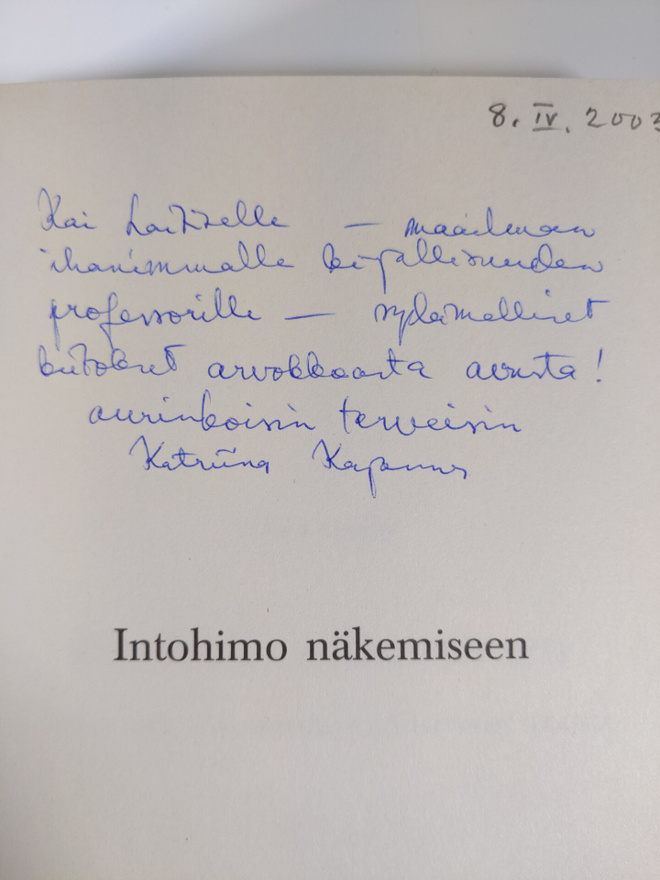 8. IV. 2003
Kai Laitiselle — maailman
ihanimmalle kirjallisuuden
professorille — sydämelliset
kiitokset arvokkaasta avusta!
aurinkoisin terveisin
Katriina Kajannes
Intohimo näkemiseen